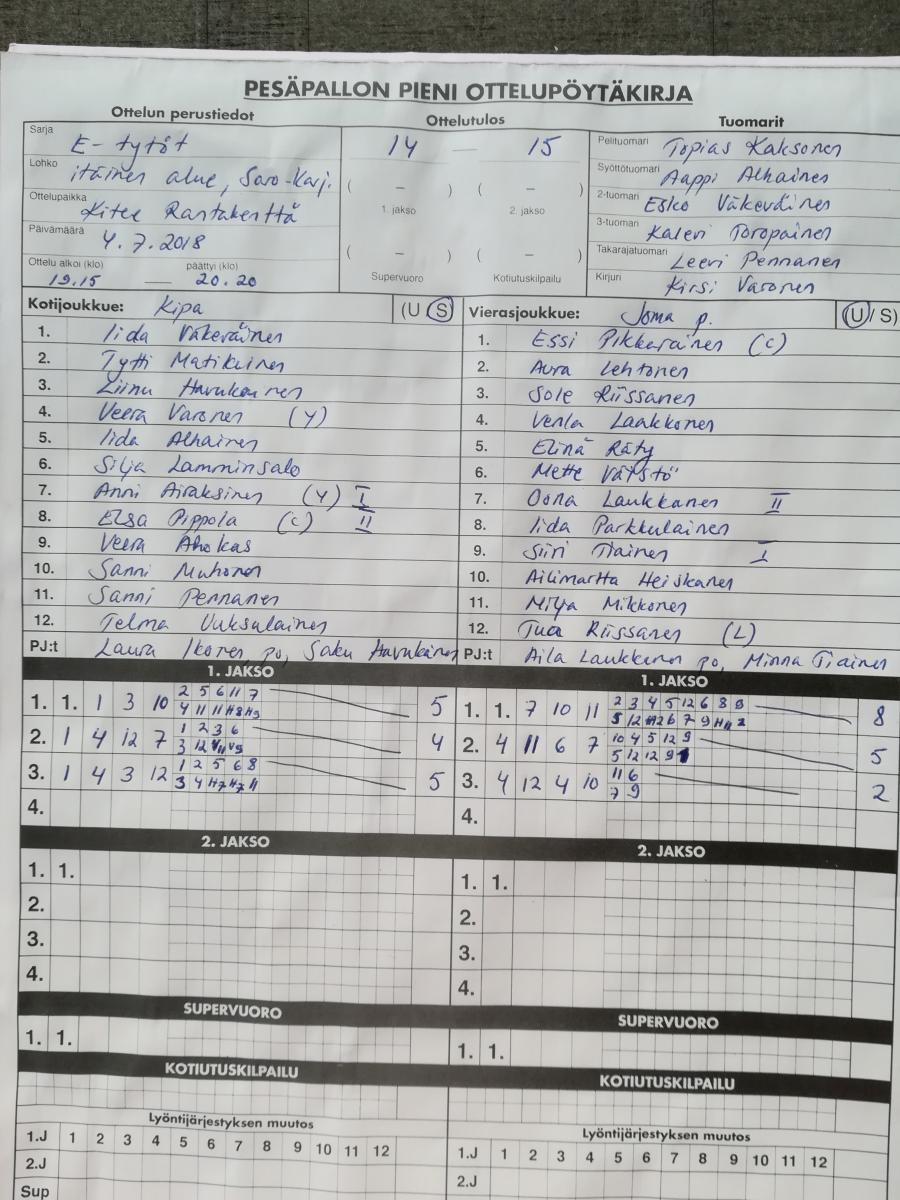 PESÄPALLON PIENI OTTELUPÖYTÄKIRJA
Ottelun perustiedot
Sarja E-tytöt
Lohko itäinen alue, Savo-Karj.
Ottelupaikka Kitee Rantakenttä
Päivämäärä 4.7.2018
Ottelu alkoi (klo) päättyi (klo)
19.15 — 20.20
Ottelutulos
14 — 15
( – ) ( – )
1. jakso 2. jakso
( – ) ( – )
Supervuoro Kotiutuskilpailu
Tuomarit
Pelituomari Topias Kaksonen
Syöttötuomari Aappi Alhainen
2-tuomari Esko Väkeväinen
3-tuomari Kalevi Toropainen
Takarajatuomari Leevi Pennanen
Kirjuri Kirsi Varonen
Kotijoukkue: Kipa (U S)
1. Iida Väkeväinen
2. Tytti Matikainen
3. Liinu Havukainen
4. Veera Varonen (Y)
5. Iida Alhainen
6. Silja Lamminsalo
7. Anni Airaksinen (Y) I
8. Elsa Pippola (C) II
9. Veera Ahokas
10. Sanni Muhonen
11. Sanni Pennanen
12. Telma Vuksalainen
PJ:t Laura Ikonen po, Saku Havukainen
Vierasjoukkue: Joma p. (U/S)
1. Essi Pikkarainen (C)
2. Aura Lehtonen
3. Sole Riissanen
4. Venla Laakkonen
5. Elina Räty
6. Mette Väistö
7. Oona Laukkanen II
8. Iida Parkkulainen
9. Siiri Tiainen I
10. Ailimartta Heiskanen
11. Milja Mikkonen
12. Tuua Riissanen (L)
PJ:t Aila Laukkanen po, Minna Tiainen
1. JAKSO
1. 1. 1 3 10 2 5 6 11 7 5
4 11 11 H8 H9
2. 1 4 12 7 1 2 3 6 4
3 12
3. 1 4 3 12 1 2 5 6 8 5
3 4 H7 H7 11
4.
1. JAKSO
1. 1. 7 10 11 2 3 4 5 12 6 8 9 8
5 12 H12 6 7 9 H11 2
2. 4 11 6 7 10 4 5 12 9 5
5 12 12 9
3. 4 12 4 10 11 6 2
7 9
4.
2. JAKSO
1. 1.
2.
3.
4.
2. JAKSO
1. 1.
2.
3.
4.
SUPERVUORO
1. 1.
SUPERVUORO
1. 1.
KOTIUTUSKILPAILU
KOTIUTUSKILPAILU
Lyöntijärjestyksen muutos
1.J 1 2 3 4 5 6 7 8 9 10 11 12
2.J
Sup
Lyöntijärjestyksen muutos
1.J 1 2 3 4 5 6 7 8 9 10 11 12
2.J